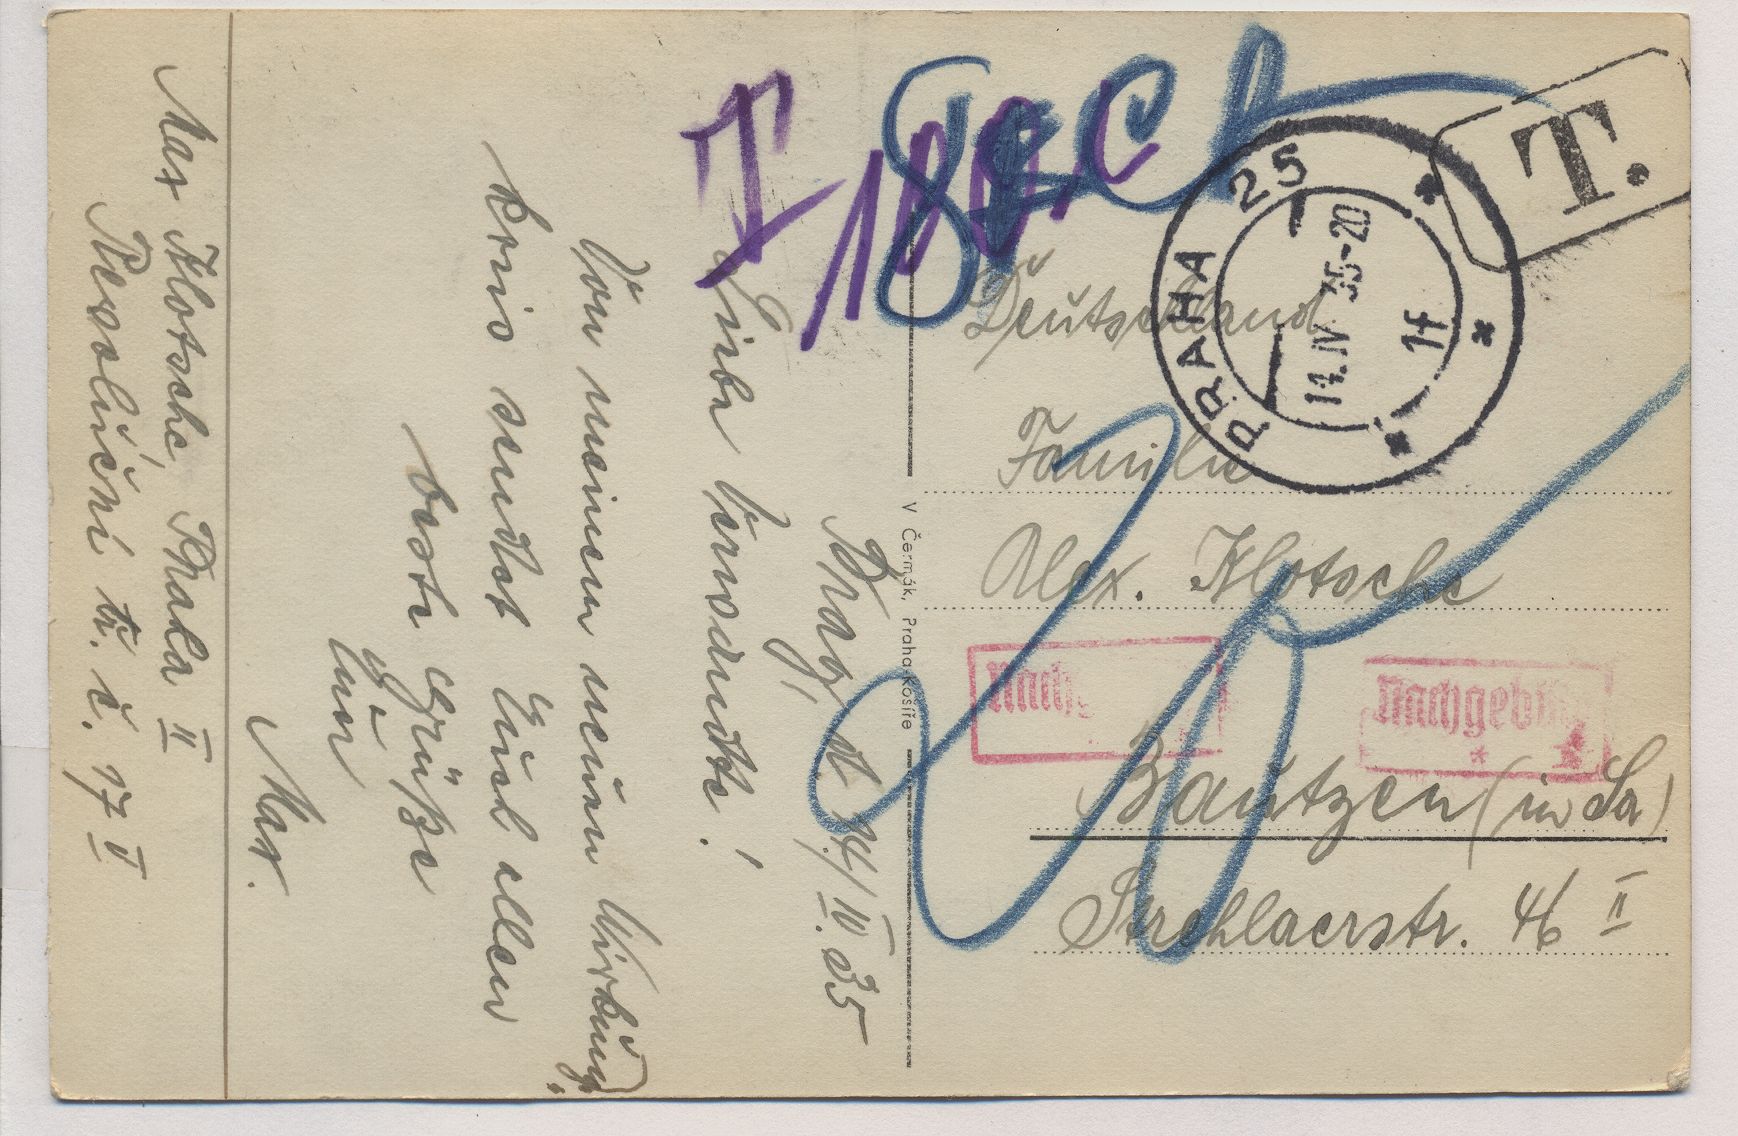 Prag, d. 14/IV. 35
Liebe Verwandte!
Von meinem neuen Wirkungs
kreis sendet Euch allen
beste Grüße
Max.
Max Klotsche, Praha II
Revoluční tř. č. 17 V
T 180 c
T.
PRAHA 25
14.IV 35-20
1f
Deutschland
Familie
Alex. Klotsche
Bautzen (in Sa)
Strehlaerstr. 46 II
Nachgebühr
V. Čermák, Praha-Košíře
20